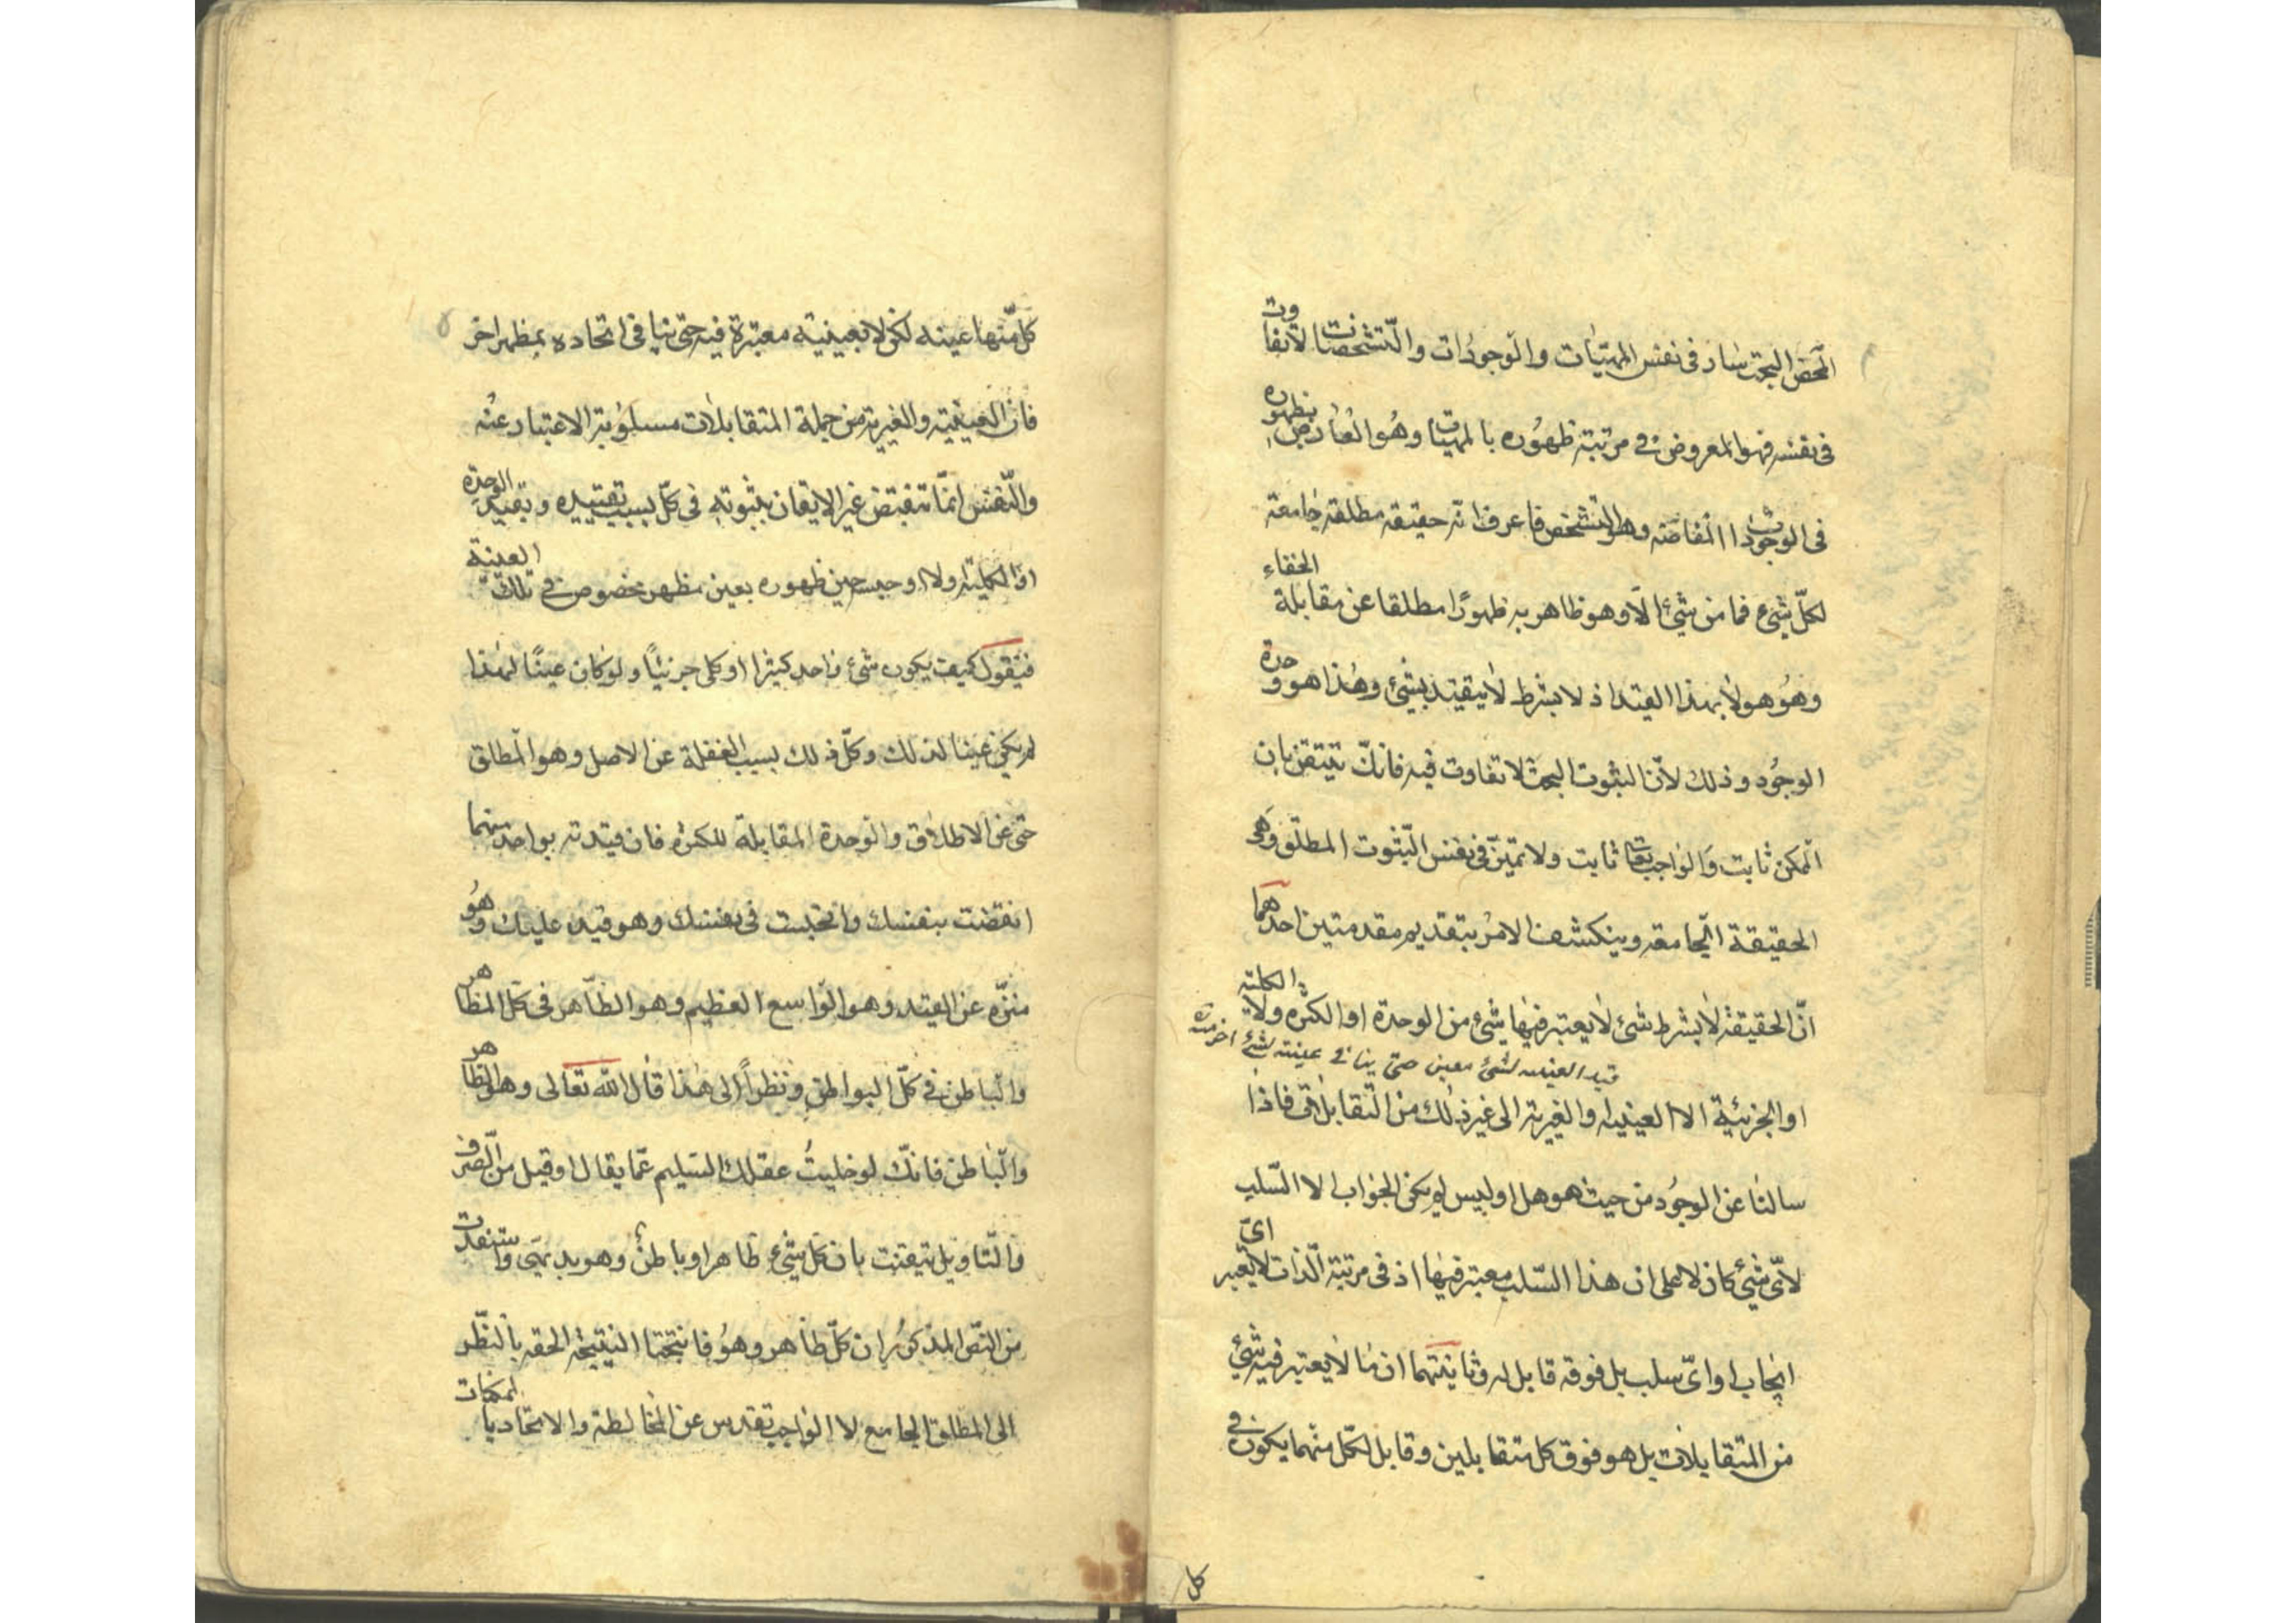 المحض البحت سار فى نفس المهيّات والوجودات والتشخصات لا تفاوت
فى نفسه فهو المعروض فى مرتبة ظهوره بالمهيات وهو العارض بظهوره
فى الوجودات المفاضة وهو التشخص فاعرف انه حقيقه مطلقه جامعة
لكلّ شىء فما من شئ الّا وهو ظاهر به ظهورًا مطلقا عن مقابلة الخفاء
وهو هو لا بهذا القيد اذ لا بشرط لا يتقيد بشئ وهذا هو وحدة
الوجود وذلك لانّ الثبوت البحت لا تفاوت فيه فانكّ تتيقن بان
الممكن ثابت والواجب تعا ثابت ولا تميّز فى نفس الثبوت المطلق وهى
الحقيقة الجامعه وينكشف الامر بتقديم مقدمتين احدهما
انّ الحقيقة لا بشرط شئ لا يعتبر فيها شئ من الوحدة او الكثره ولا الكلية
قيد العينيه لشئ معين حتى ينافى عينيته لشئ اخر منه
او الجزئية الا العينيه والغيرية الى غير ذلك من التقابلات فاذا
سالنا عن الوجود من حيث هو هل او ليس لم يكن الجواب الا السّلب
لاىّ شئ كان لا على ان هذا السّلب معتبر فيها اذ فى مرتبة الّذات لا يعتبر اىّ
ايجاب او اىّ سلب بل فوقه قابل له وثانيتهما ان ما لا يعتبر فيه شئ
من المتقابلات بل هو فوق كل متقابلين وقابل لكلّ منهما يكون فى
كل
كل منها عينه لكن لا بعينية معتبرة فيه حتى ينافى اتحاده بمظهر اخر
فان العينية والغيرية من جملة المتقابلات مسلوبة الاعتبار عنه
والنفس انما تنقبض عن الايقان بثبوته فى كلّ بسبب تقييده وتقييد الوحدة
او الكلية ولا وحين ظهوره بعين مظهر مخصوص فى تلك العينية
فيقول كيف يكون شئ واحد كثيرا او كلى جزئيًا ولو كان عينًا لهذا
لم يكن عينا لذلك وكلّ ذلك بسبب الغفلة عن الاصل وهو المطلق
حتى عن الاطلاق والوحدة المقابلة للكثرة فان قيدته بواحد منهما
انقضت بنفسك وانحبست فى نفسك وهو قيد عليك وهو
منزّه عن القيد وهو الواسع العظيم وهو الظّاهر فى كل المظاهر
والباطن فى كلّ البواطن ونظراً الى هذا قال الله تعالى وهو الظاهر
والباطن فانكّ لو خليتُ عقلك السليم عمّا يقال او قيل من الصرف
والتاويل تيقنت بان كل شئ ظاهرا وباطنٌ وهو بديهى واستفدت
من النصّ المذكور ان كلّ ظاهر وهو فانتجتا النتيجة الحقه بالنظر
الى المطلق الجامع لا الواجب تقدس عن المخالطة والاتحاد بالممكنات